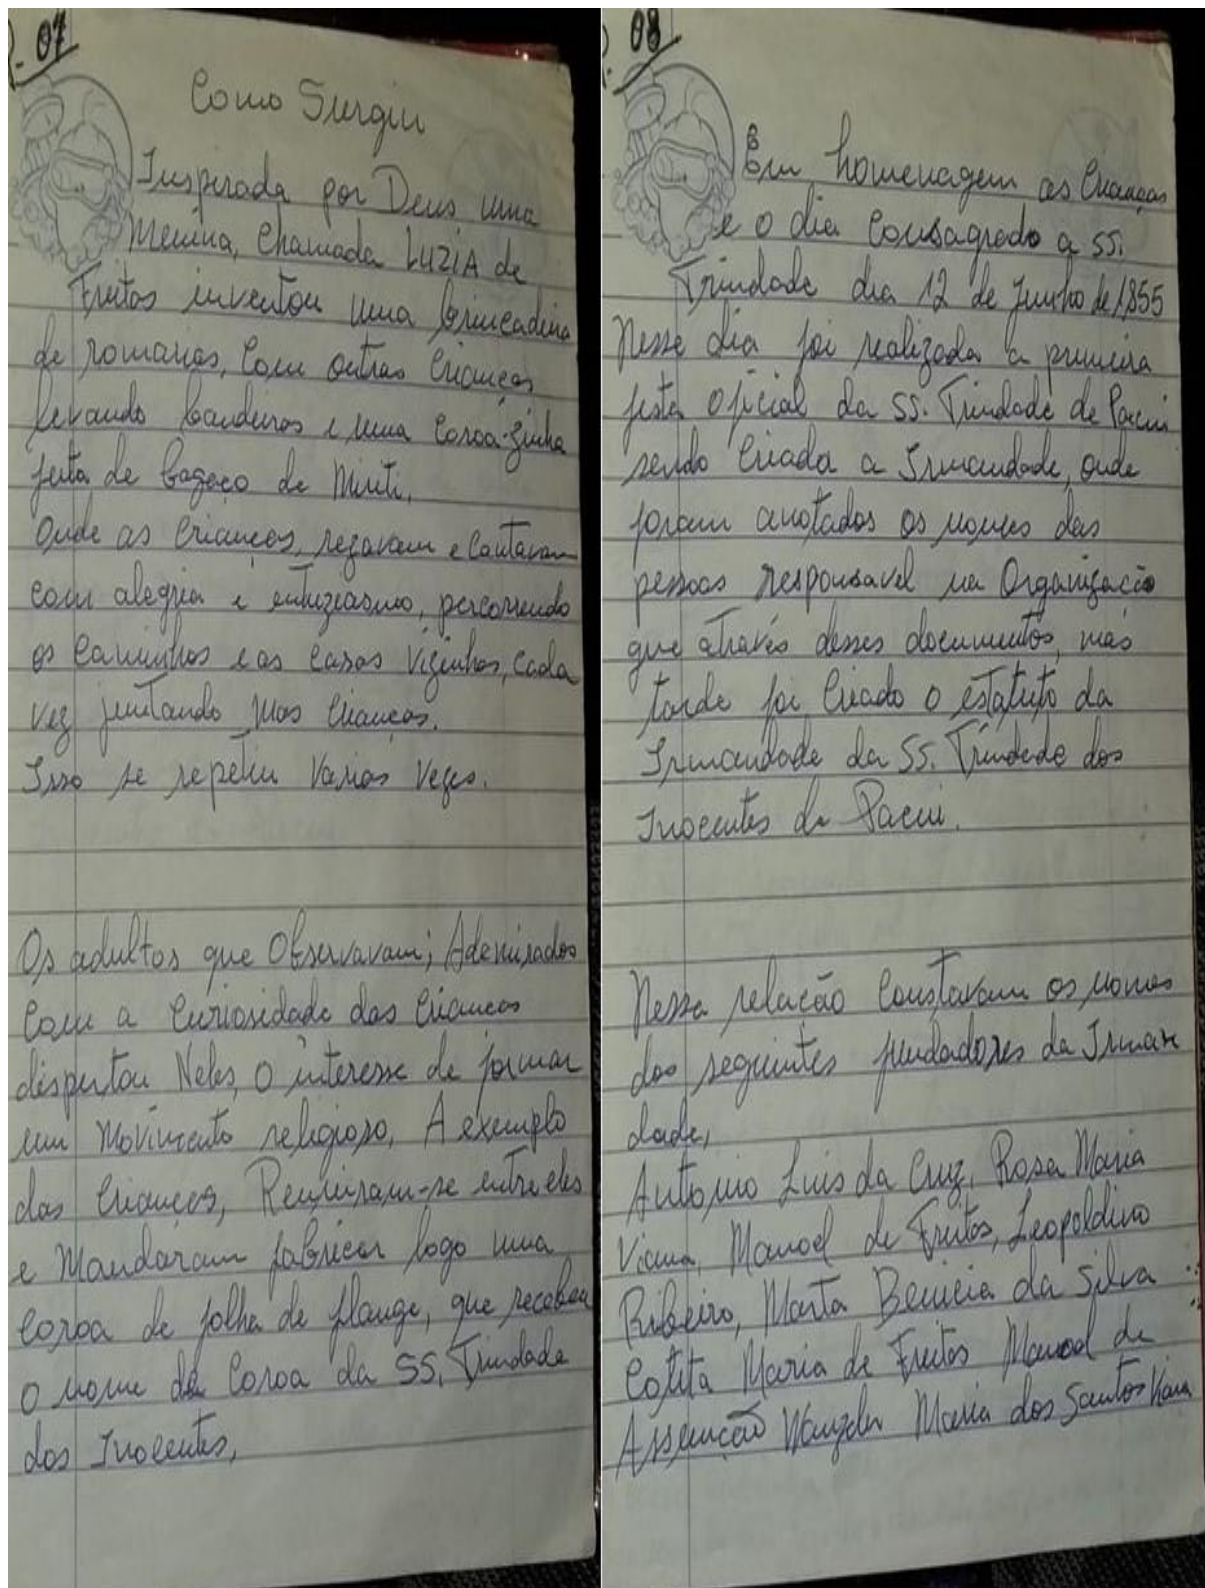 P. 07
Como Surgiu
Inspirada por Deus uma
Menina, Chamada LUZIA de
Freitas inventou uma brincadeira
de romarias, Com outras Crianças
levando bandeiras e uma Coroa-zinha
feita de bagaço de Miriti,
Onde as Crianças, rezavam e Cantavam
com alegria e entuziasmo, percorrendo
os Caminhos e as Casas Vizinhas, Cada
vez juntando mas Crianças.
Isso se repetiu Varias Vezes.
Os adultos que Observavam; Ademirados
Com a Curiosidade das Crianças
despertou Neles, O interesse de formar
um Movimento religioso, A exemplo
das Crianças, Reuniram-se entre eles
e Mandaram fabricar logo uma
Coroa de folha de flange, que recebeu
O nome de Coroa da SS. Trindade
dos Inocentes,
P. 08
Em homenagem as Crianças
e o dia Consagrado a SS.
Trindade dia 12 de Junho de 1855
Nesse dia foi realizada a primeira
festa oficial da SS. Trindade de Pacui
sendo Criada a Irmandade, onde
foram anotados os nomes das
pessoas responsavel na Organização
que através desses documentos, mas
tarde foi Criado o estatuto da
Irmandade da SS. Trindade dos
Inocentes de Pacui.
Nessa relação Constavam os nomes
dos seguintes fundadores da Irman
dade,
Antonio Luis da Cruz, Rosa Maria
Viana, Manoel de Freitas, Leopoldino
Ribeiro, Marta Benicia da Silva
Cotita Maria de Freitas Manoel de
Assunção Wanzeler Maria dos Santos Viana